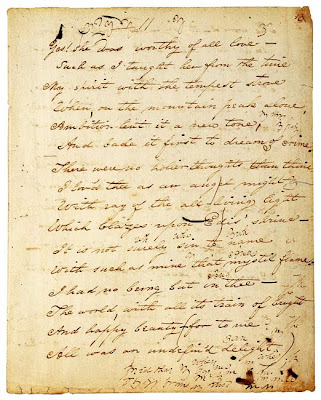 Yes! she was worthy of all love —
Such as I taught her from the time
My spirit with the tempest strove
When, on the mountain peak alone,
Ambition lent it a new tone,
And bade it first to dream of crime
There were no holier thoughts than thine
I lov'd thee as an angel might
With ray of the all living light
Which blazes upon Edis' shrine —
It is not surely sin to name
With such as mine that mystic flame
I had no being but in thee —
The world, with all its train of light
And happy beauty (for to me
All was an undefin'd delight)